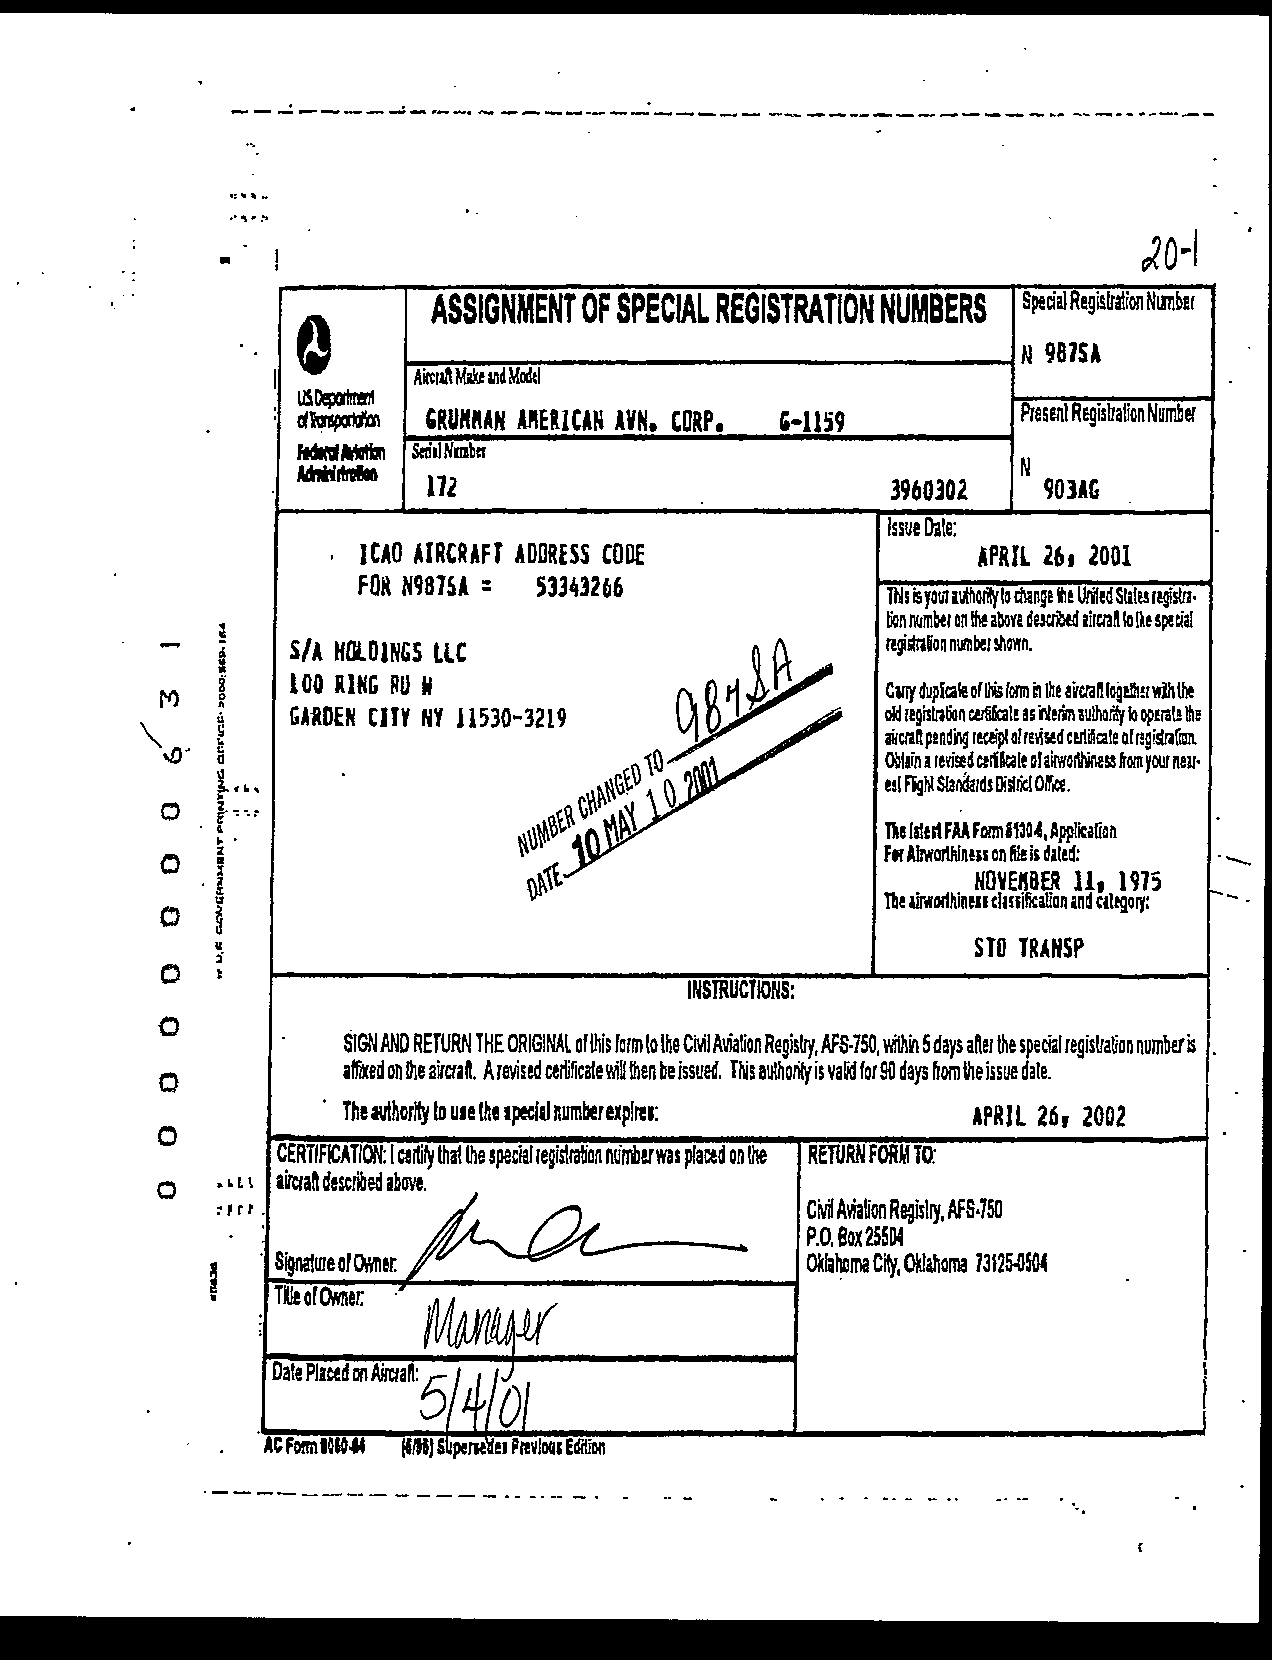 20-1
ASSIGNMENT OF SPECIAL REGISTRATION NUMBERS
Special Registration Number
N 987SA
US Department
of Transportation
Federal Aviation
Administration
Aircraft Make and Model
GRUMMAN AMERICAN AVN. CORP. G-1159
Present Registration Number
N
903AG
Serial Number
172 3960302
ICAO AIRCRAFT ADDRESS CODE
FOR N987SA = 53343266
S/A HOLDINGS LLC
100 RING RD W
GARDEN CITY NY 11530-3219
NUMBER CHANGED TO 987SA
DATE 10 MAY 10 2001
Issue Date:
APRIL 26, 2001
This is your authority to change the United States registra-
tion number on the above described aircraft to the special
registration number shown.
Carry duplicate of this form in the aircraft together with the
old registration certificate as interim authority to operate the
aircraft pending receipt of revised certificate of registration.
Obtain a revised certificate of airworthiness from your near-
est Flight Standards District Office.
The latest FAA Form 8130-6, Application
For Airworthiness on file is dated:
NOVEMBER 11, 1975
The airworthiness classification and category:
STD TRANSP
INSTRUCTIONS:
SIGN AND RETURN THE ORIGINAL of this form to the Civil Aviation Registry, AFS-750, within 5 days after the special registration number is
affixed on the aircraft. A revised certificate will then be issued. This authority is valid for 90 days from the issue date.
The authority to use the special number expires: APRIL 26, 2002
CERTIFICATION: I certify that the special registration number was placed on the
aircraft described above.
Signature of Owner:
Title of Owner:
Manager
Date Placed on Aircraft:
5/4/01
RETURN FORM TO:
Civil Aviation Registry, AFS-750
P.O. Box 25504
Oklahoma City, Oklahoma 73125-0504
AC Form 8050-64 (6/96) Supersedes Previous Edition
0 0 0 0 0 0 0 0 6 3 1